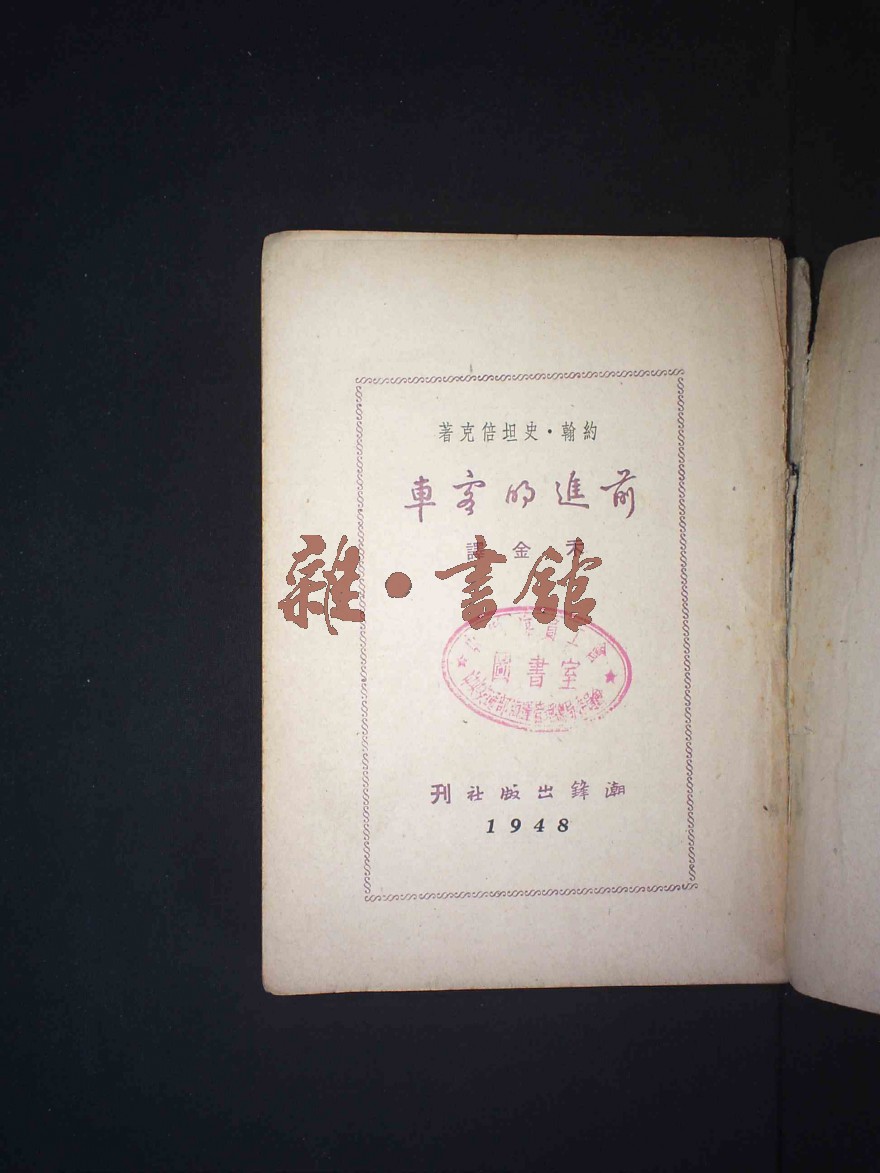 約翰·史坦倍克著
前進的客車
禾金譯
雜·書館
圖書室
潮鋒出版社刊
1948